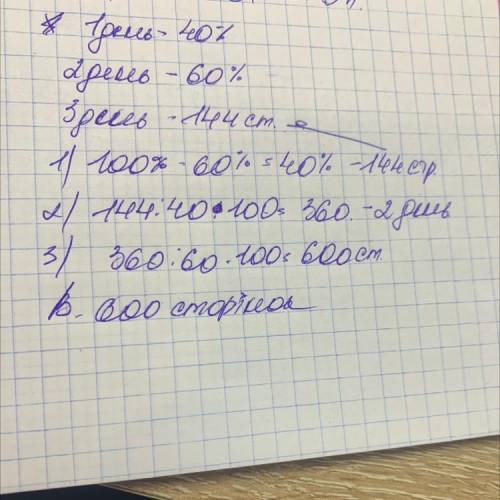 * 1 день - 40%
2 день - 60%
3 день - 144 ст.
1) 100% - 60% = 40% - 144 стр.
2) 144 : 40 • 100 = 360. - 2 день
3) 360 : 60 · 100 = 600 ст.
В. 600 сторінок